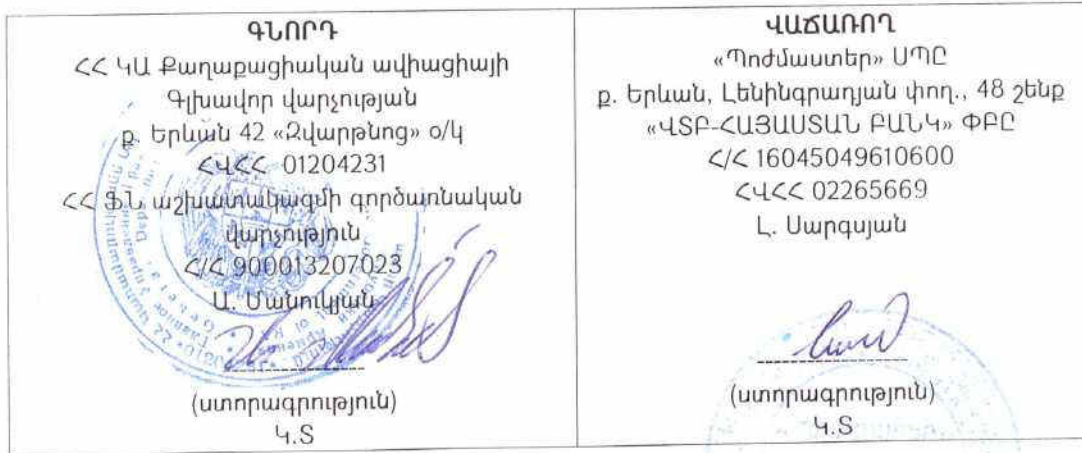 ԳՆՈՐԴ
ՀՀ ԿԱ Քաղաքացիական ավիացիայի
Գլխավոր վարչության
ք. Երևան 42 «Զվարթնոց» օ/կ
ՀՎՀՀ 01204231
ՀՀ ՖՆ աշխատակազմի գործառնական
վարչություն
Հ/Հ 900013207023
Ա. Մանուկյան
(ստորագրություն)
Կ.Տ
ՎԱՃԱՌՈՂ
«Պոժմաստեր» ՍՊԸ
ք. Երևան, Լենինգրադյան փող., 48 շենք
«ՎՏԲ-ՀԱՅԱՍՏԱՆ ԲԱՆԿ» ՓԲԸ
Հ/Հ 16045049610600
ՀՎՀՀ 02265669
Լ. Սարգսյան
(ստորագրություն)
Կ.Տ